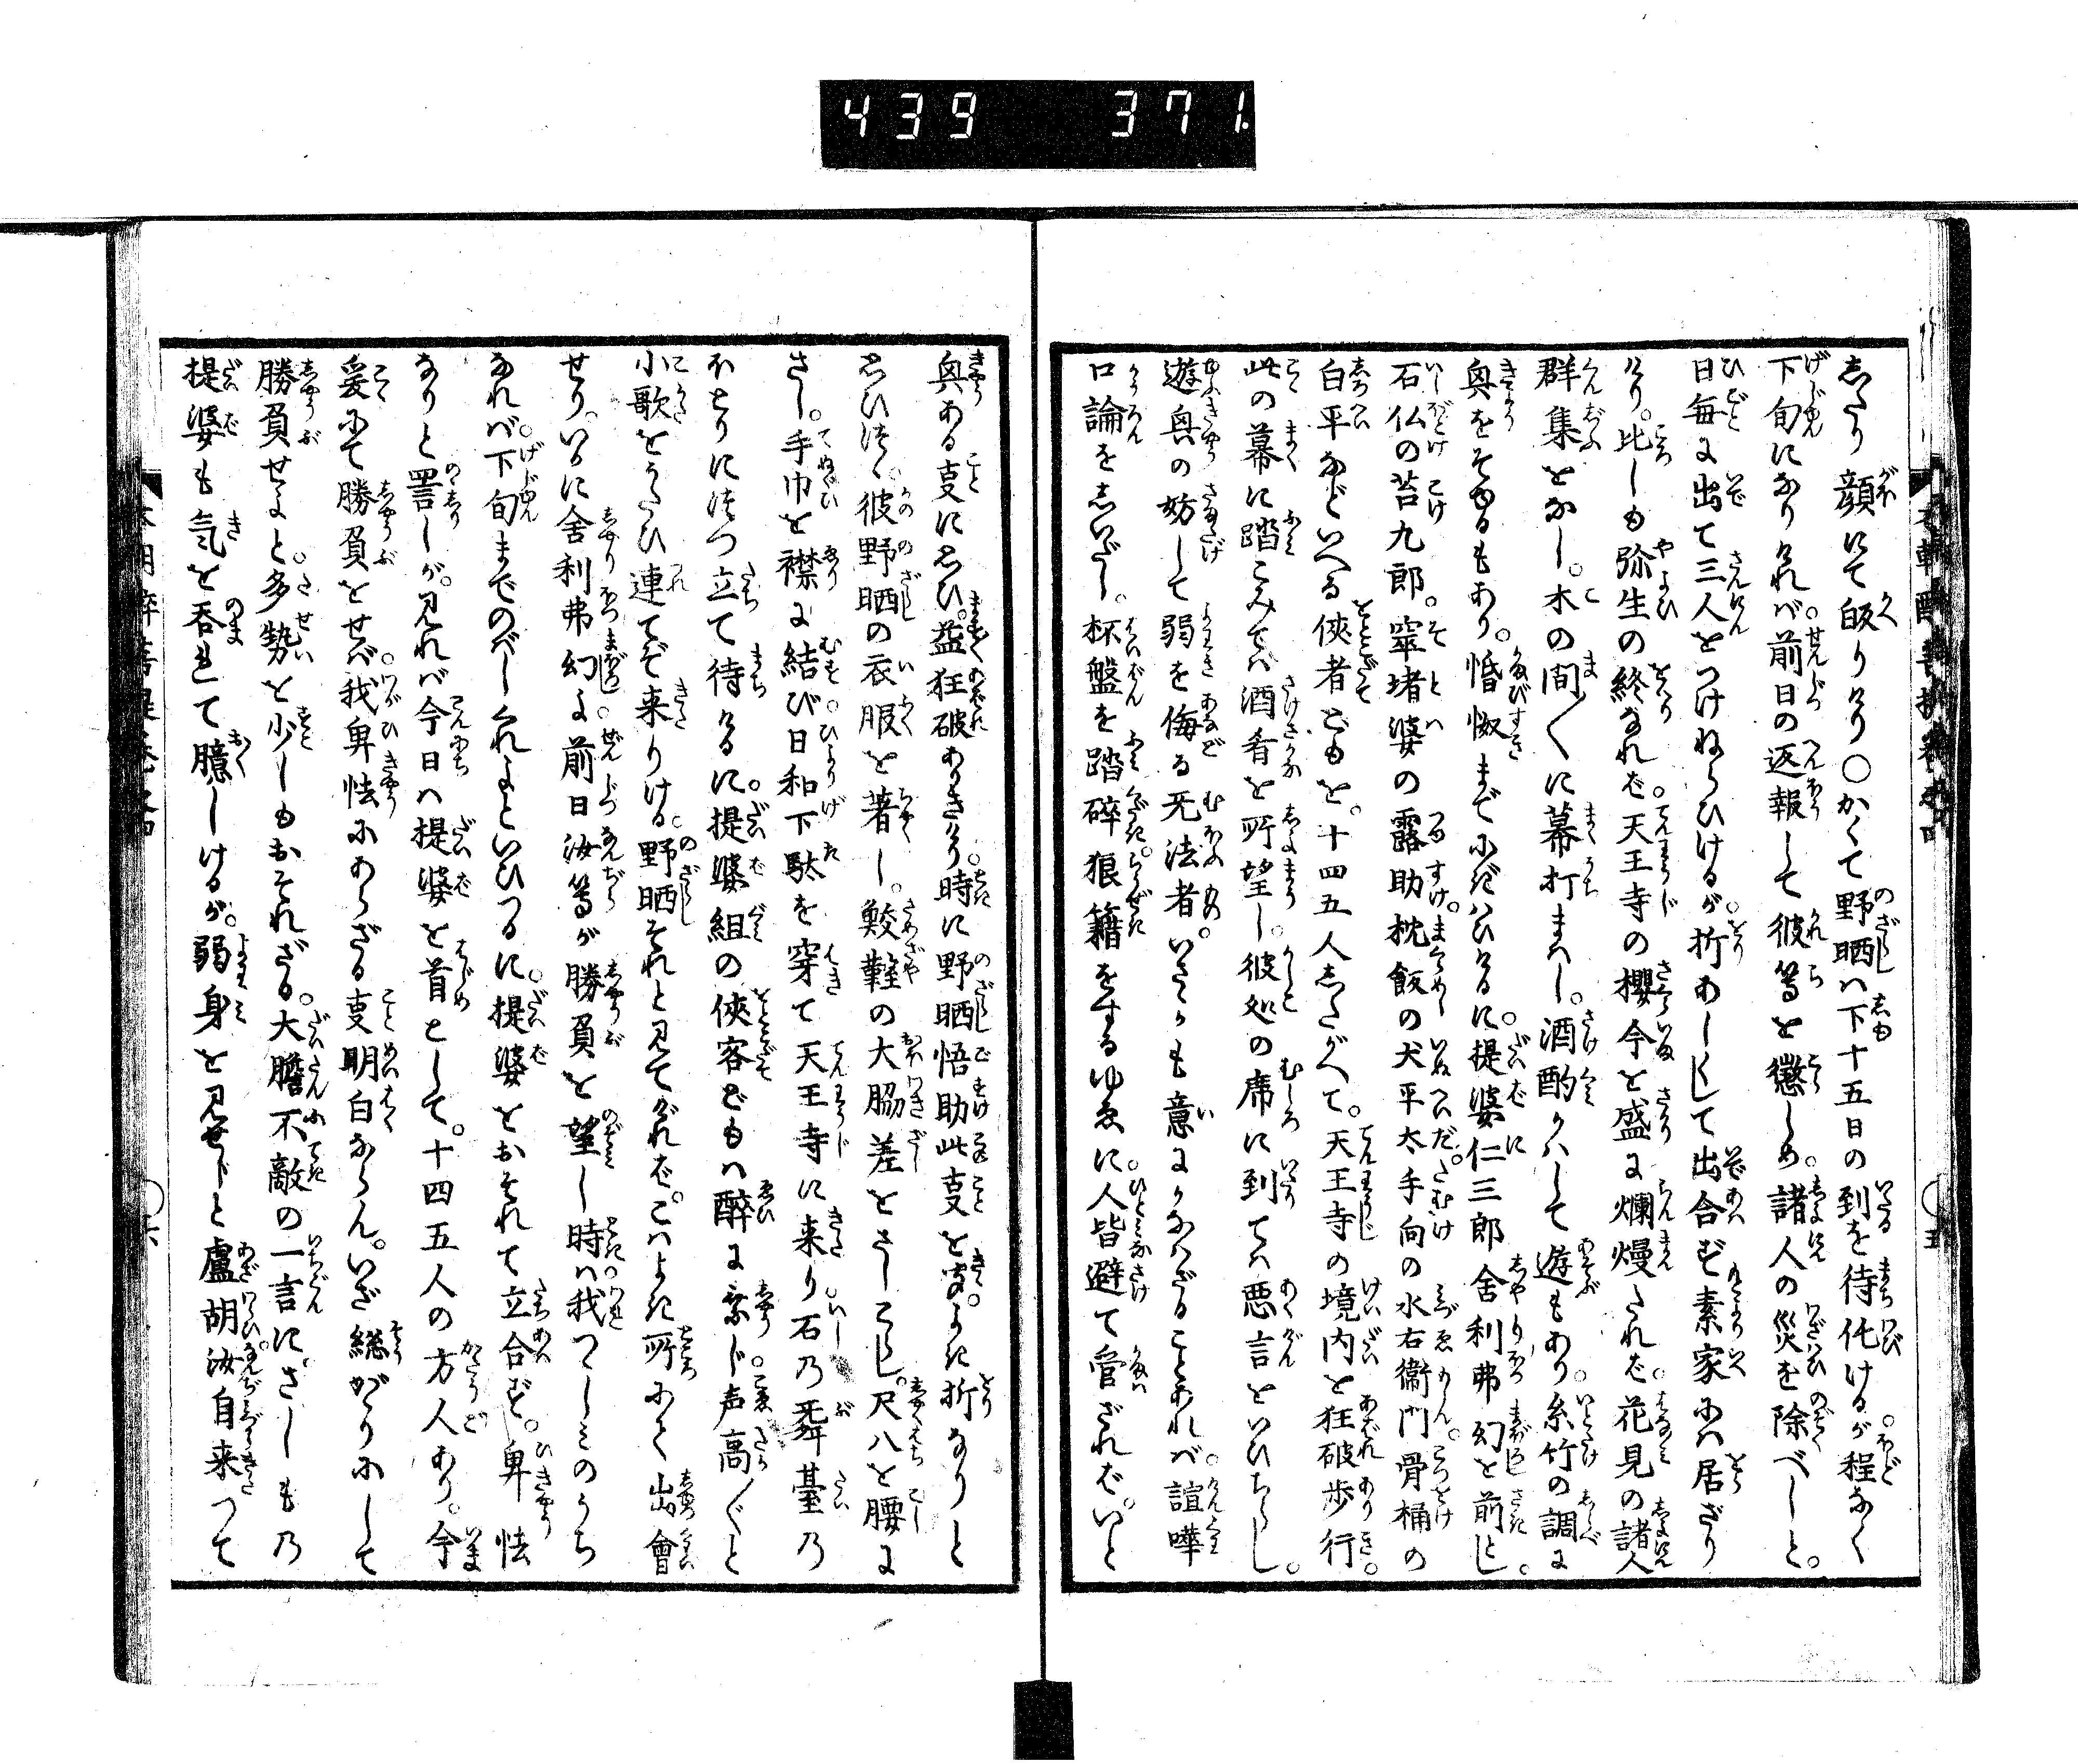 439 371
したり顔にて皈りけり○かくて野晒ハ下十五日の到を待侘けるが。程なく
下旬になりければ。前日の返報して彼等を懲しめ。諸人の災を除べしと。
日毎に出て三人をつけねらひけるが。折あしくして出合ず素家にハ居ざり
けり。比しも弥生の終なれば。天王寺の櫻今を盛に爛熳たれば。花見の諸人
群集をなし。木の間〱に幕打まハし。酒酌かハして遊もあり。糸竹の調に
興をそゆるもあり。惛怓までにぎハひけるに。提婆仁三郎舎利弗幻を前とし。
石仏の苔九郎。窣堵婆の露助枕飯の犬平太手向の水右衛門骨桶の
白平などいへる俠者どもを。十四五人したがへて。天王寺の境内を狂破歩行。
此の幕に踏こみてハ酒肴を所望し。彼処の席に到てハ悪言をいひちらし。
遊興の妨して弱を侮る无法者。いさゝも意にかなハざることあれバ。諠嘩
口論をしいだし。杯盤を踏碎狼籍をするゆゑに。人皆避て管ざれば。いと
興ある叓に思ひ。益狂破ありきけり。時に野晒悟助此叓を聞。よき折なりと
思ひつゝ。彼野晒の衣服を著し。鮫鞘の大脇差をさしこらし。尺八を腰に
さし。手巾を襟に結び。日和下駄を穿て天王寺に来り。石乃舞臺乃
ほとりにつゝ立て待けるに。提婆組の俠客どもハ醉に乗じ。声高〲と
小歌をうたひ連てぞ来りける。野晒それと見てければ。こハよき所にて出會
せり。いかに舎利弗幻よ。前日汝等が勝負を望し時。ハ我つゝしみのうち
なれバ。下旬までのべくれよといひつるに。提婆をおそれて立合ず。卑怯
なりと詈しが。見れバ今日ハ提婆を首として。十四五人の方人あり。今
爰にて勝負をせバ。我卑怯にあらざる叓明白ならん。いざ総がゝりにして
勝負せよと。多勢を少しもおそれざる。大膽不敵の一言に。さしも乃
提婆も気を呑れて臆しけるが。弱身を見せじと盧胡。汝自来つて